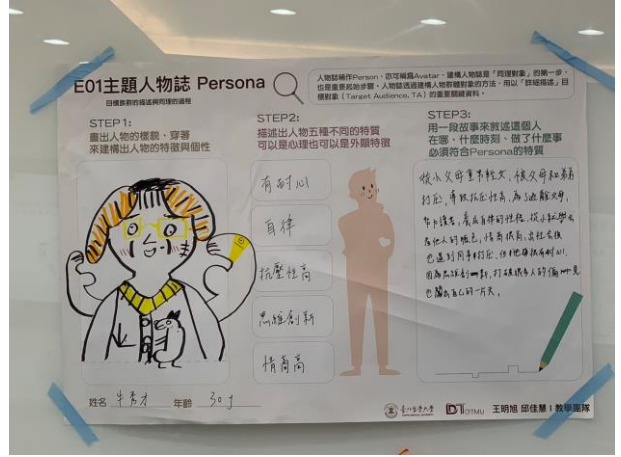 E01主題人物誌 Persona
目標族群的描述與同理的過程
人物誌稱作Person、亦可稱為Avatar,建構人物誌是「同理對象」的第一步,
也是重要起始步驟。人物誌透過建構人物群體對象的方法,用以「詳細描述」目
標對象(Target Audience, TA)的重要關鍵資料。
STEP1:
畫出人物的樣貌、穿著
來建構出人物的特徵與個性
STEP2:
描述出人物五種不同的特質
可以是心理也可以是外顯特徵
有耐心
自律
抗壓性高
思維創新
情商高
STEP3:
用一段故事來敘述這個人
在哪、什麼時刻、做了什麼事
必須符合Persona的特質
從小父母重男輕女,被父母和弟弟
打壓,導致抗壓性高,為了逃離父母,
努力讀書,養成自律的性格,從小就學
看他人的臉色,情商很高,出社會後
也遇到同事打壓,但他都很有耐心,
因為思維創新,打破很多人的偏見
也闖出自己的一片天。
姓名 牛秀才 年齡 30y
DTMU 王明旭 邱佳慧 | 教學團隊